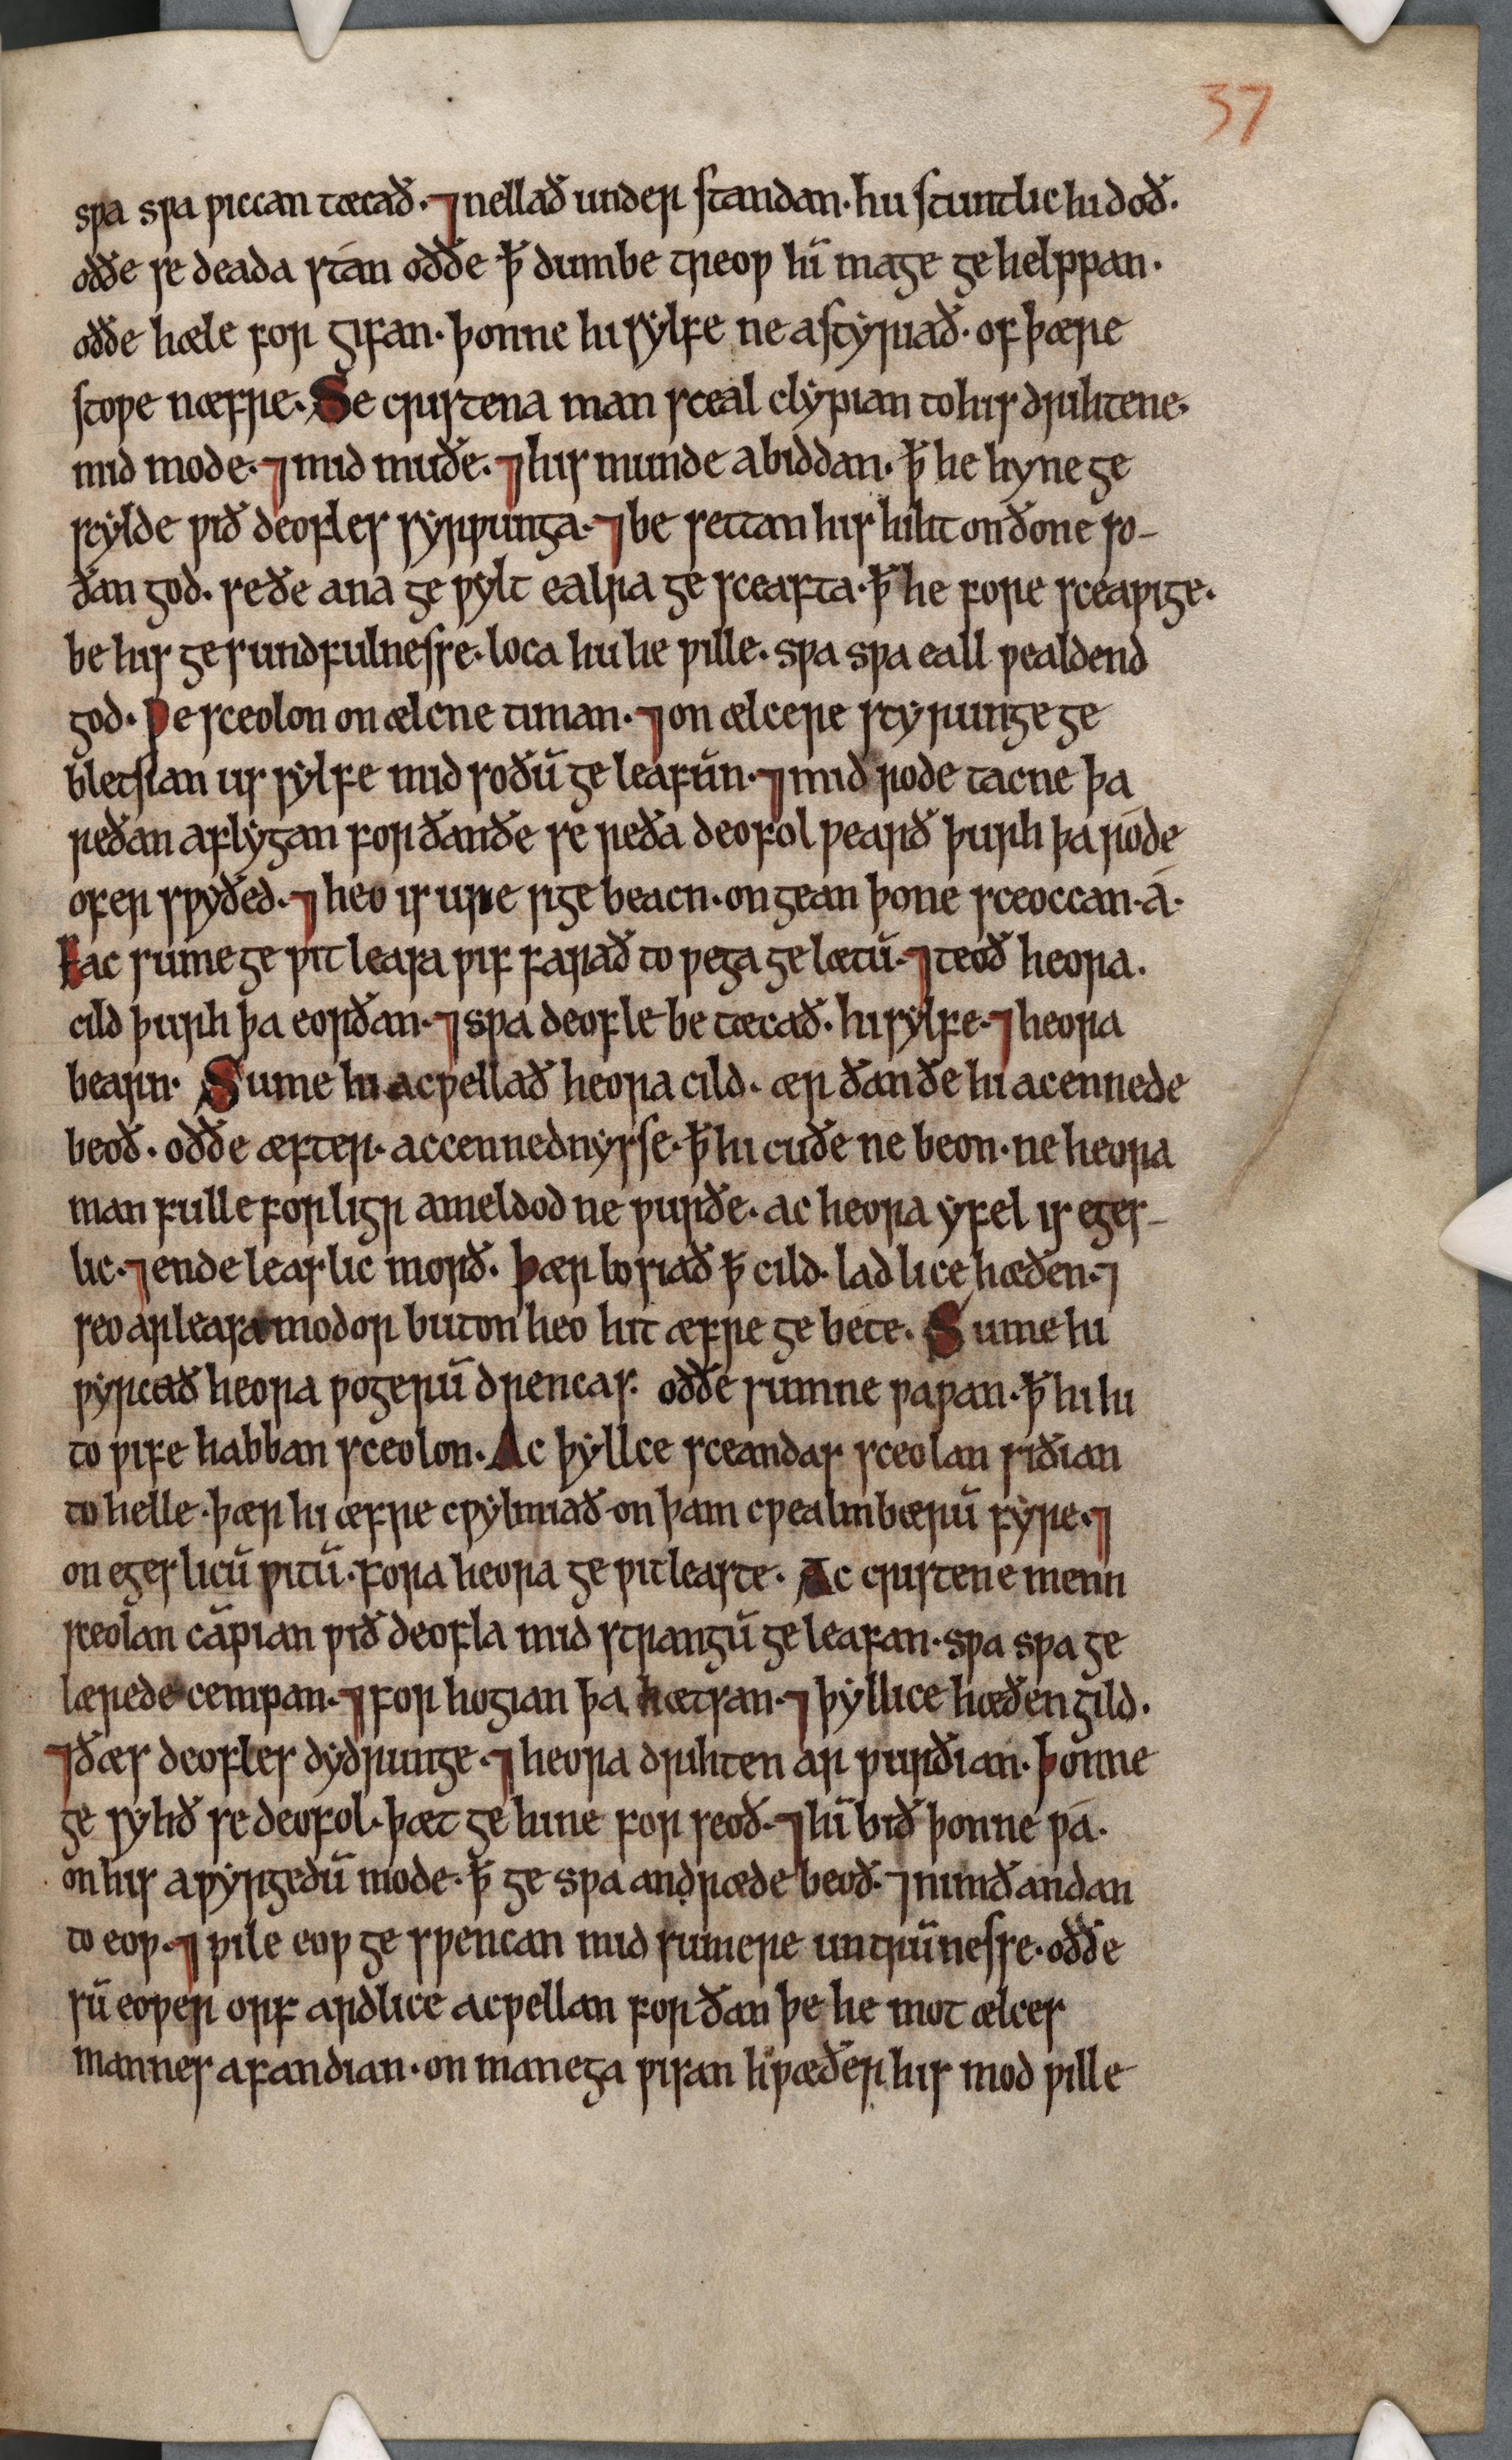 37
spa spa piccan tæcað· ⁊ nellað under standan· hu stuntlic hi doð·
oððe se deada stán oððe ꝥ dumbe treoƿ hī mage ge helppan·
oððe hæle for gifan· þonne hi sẏlfe ne astẏriað· of þære
stoƿe næfre· Se cristena man sceal clẏpian to his drihtene·
mid mode· ⁊ mid muðe· ⁊ his munde abiddan· ꝥ he hyne ge
scẏlde ƿið deofles sẏrƿunga· ⁊ be settan his hiht on ðone so-
ðan god· seðe ana ge ƿylt ealra ge sceafta· ꝥ he fore sceaƿige·
be his ge sundfulnesse· loca hu he ƿille· sƿa sƿa eall ƿealdend
god· Ƿe sceolon on ælcne timan· ⁊ on ælcere styrunge ge
bletsian us sẏlfe mid soðū ge leafun· ⁊ mid rode tacne þa
reðan aflẏgan for ðanðe se reða deofol ƿearð þurh þa róde
ofer sƿẏðed· ⁊ heo is ure sige beacn· on gean þone sceoccan· á·
Eac sume ge ƿit leasa ƿif farað to ƿega ge lætū· ⁊ teoð heora·
cild þurh þa eorðan· ⁊ sƿa deofle be tæcað· hi sẏlfe· ⁊ heora
bearn· Sume hi acƿellað heora cild· ær ðan ðe hi acennede
beoð· oððe æfter· accennednẏsse· ꝥ hi cuðe ne beon· ne heora
man fulle forligr ameldod ne ƿurðe· ac heora ẏfel is eges-
lic· ⁊ ende leaslic morð· Þær losiað ꝥ cild· ladlice hæðen· ⁊
seo arleasa modor buton heo hit æfre ge béte· Sume hi
ƿyrcað heora ƿogerū drencas· oððe sumne ƿaƿan· ꝥ hi hi
to ƿife habban sceolon· Ac þẏllce sceandas sceolan siðian
to helle· þær hi æfre cƿẏlmiað on þam cƿealmbærū fẏre· ⁊
on egeslicū ƿitū· fora heora ge ƿitleaste· Ac cristene menn
sceolan cāpian ƿið deofla mid strangū ge leafan· sƿa sƿa ge
lærede cempan· ⁊ for hogian þa hætsan· ⁊ þẏllice hæðen gild·
⁊ ðæs deofles dẏdrunge· ⁊ heora drihten ar ƿurðian· Þonne
ge sẏhð se deofol· þæt ge hine for seoð· ⁊ hī bið þonne ƿá·
on his aƿẏrgedū mode· ꝥ ge sƿa andræde beoð· ⁊ nimð andan
to eoƿ· ⁊ ƿile eoƿ ge sƿencan mid sumere untrūnesse· oððe
sū eoƿer orf ardlice acƿellan for ðan þe he mot ælces
mannes afandian· on manega ƿisan hƿæðer his mod ƿille